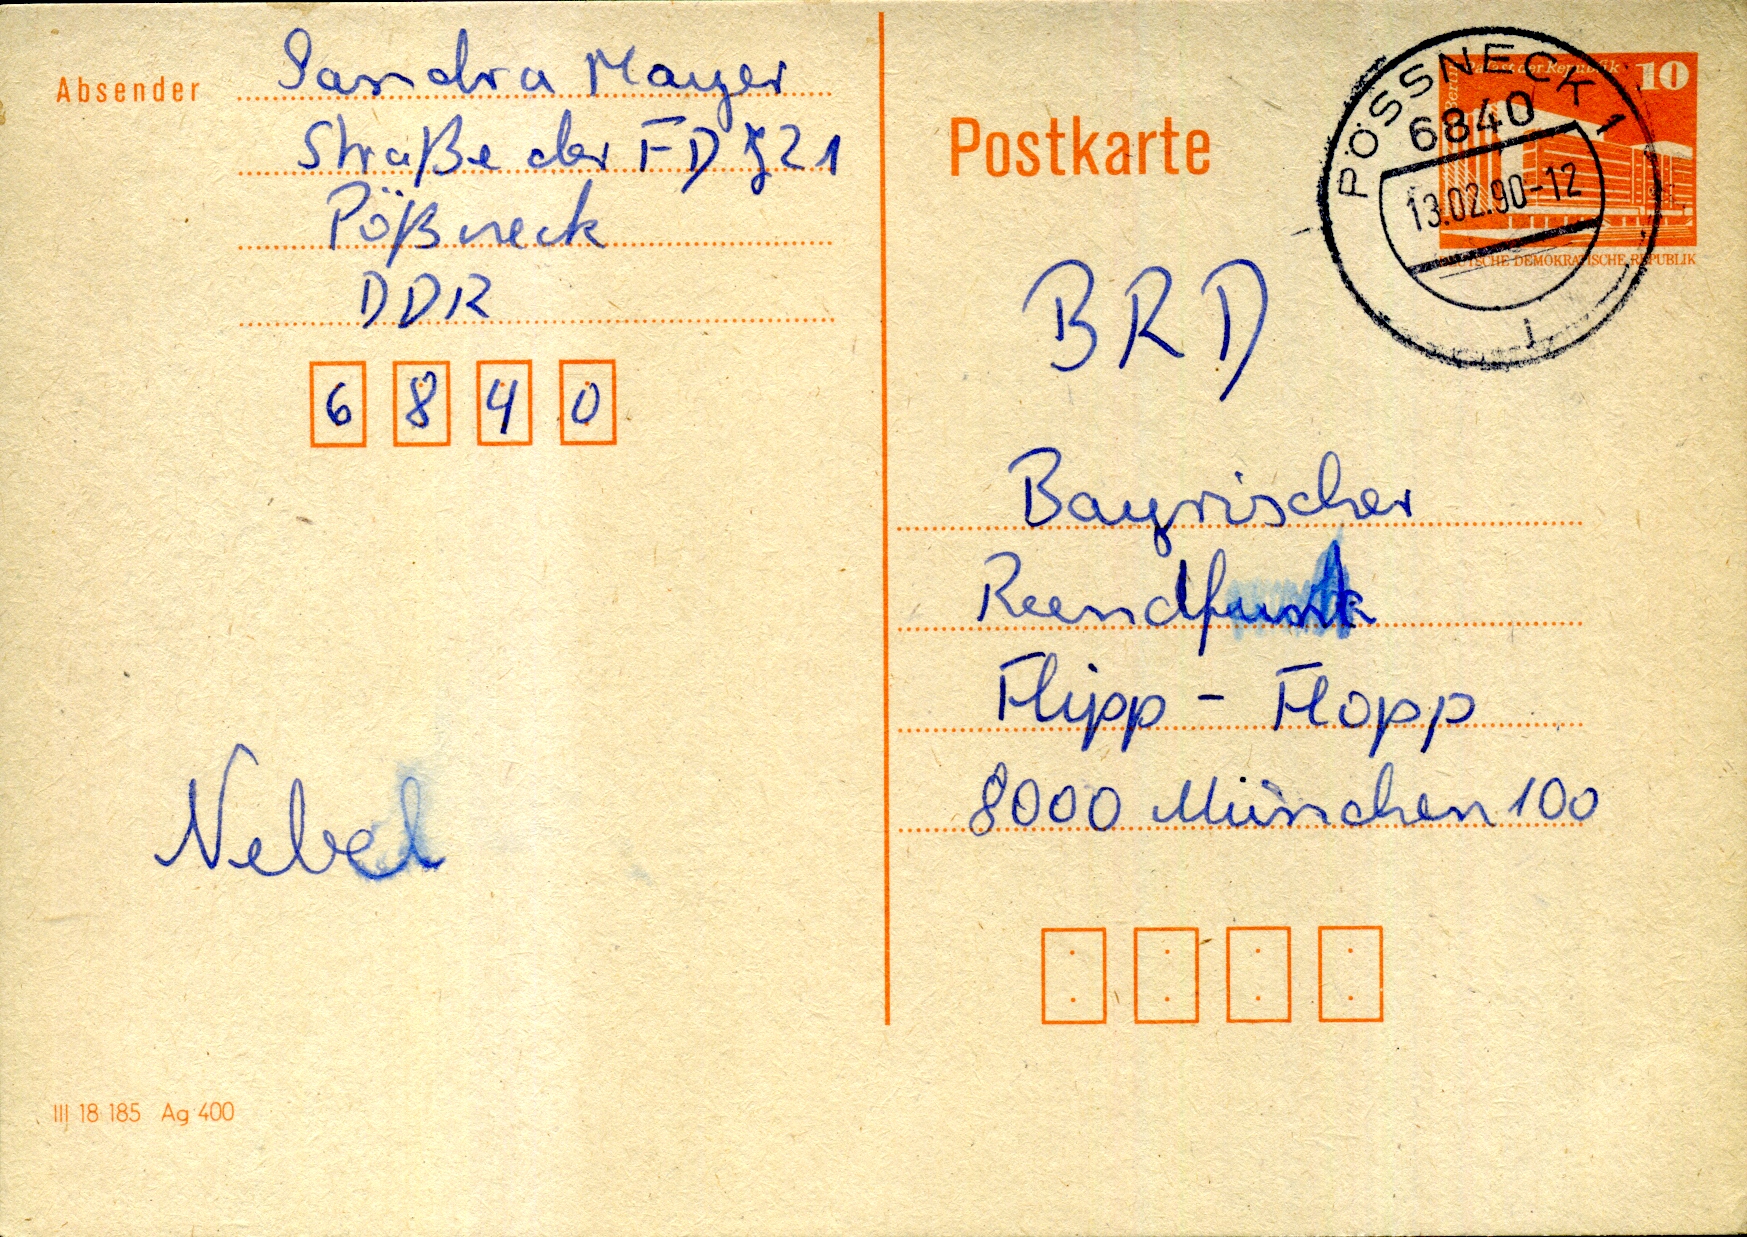 Absender
Sandra Mayer
Straße der FDJ 21
Pößneck
DDR
6 8 4 0
Nebel
III 18 185 Ag 400
Postkarte
PÖSSNECK 1
6840
13.02.90-12
Berlin Palast der Republik
10
DEUTSCHE DEMOKRATISCHE REPUBLIK
BRD
Bayrischer
Rundfunk
Flipp - Flopp
8000 München 100